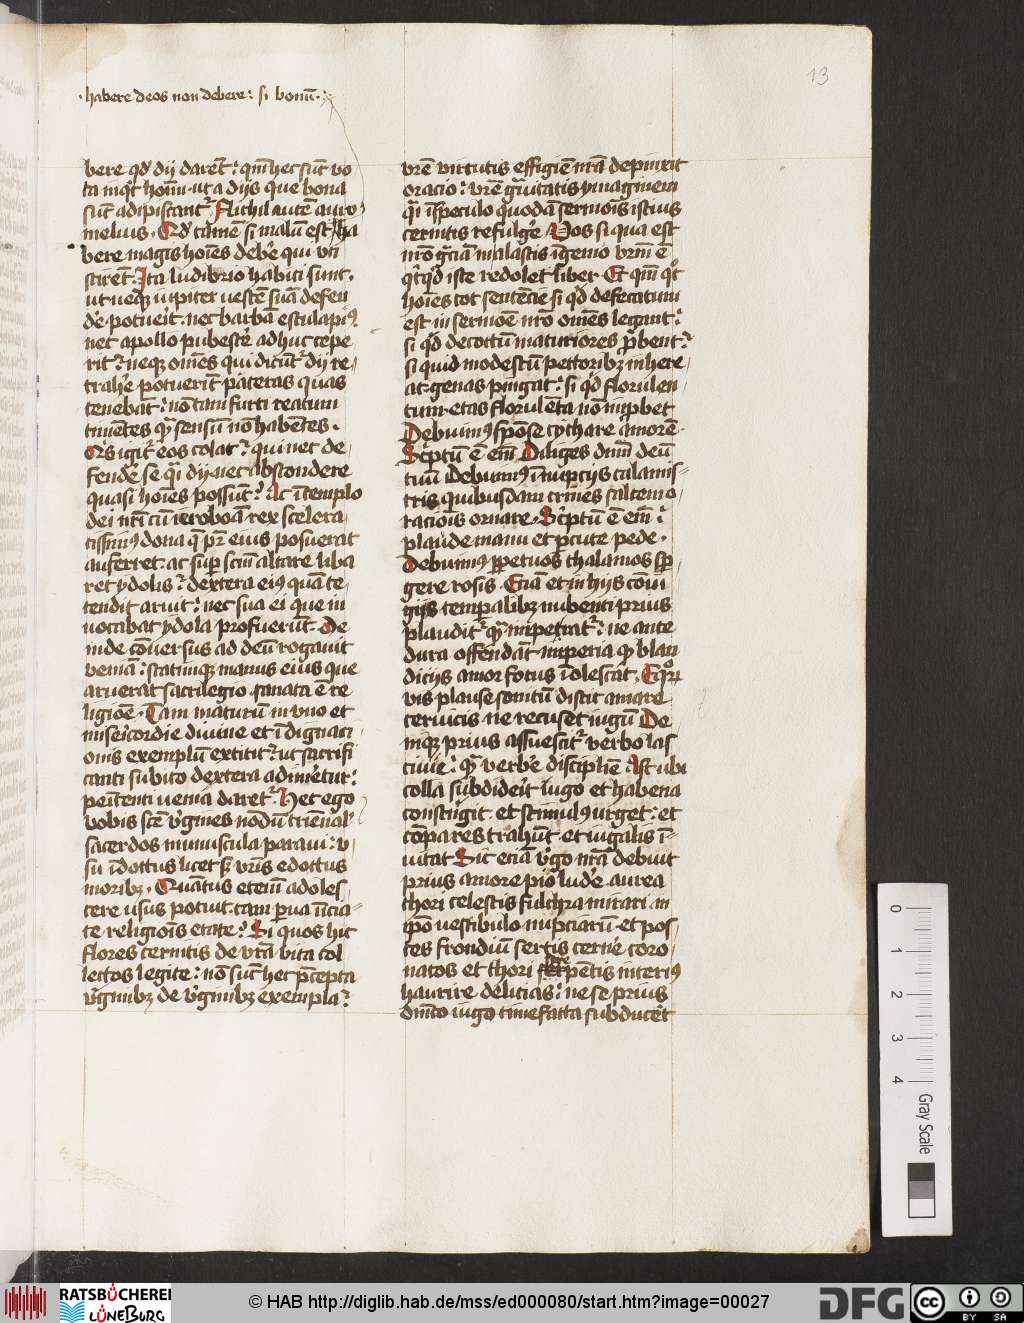 13
· habere deos non debere : si bonū ·
bere qd̛ dij darēt : qm̄ hec sūt vo
ta inqͥt hoīm · ut a dijs que bona
sūt adipiscant᷑ Nichil autē auro
melius · Qd̛ tamē si malum est ha
bere magis hoīes debēe qui vti
scirēt · Ita ludibrio habiti sunt ·
ut neqꝫ iupiter uestē suā defen
dē potuerit · nec barbā esculapiꝰ
nec apollo pubescē adhuc cepe
rit : neqꝫ oīnes qui dicūt᷑ dij re
trahe potuerīt pateras quas
tenebāt : nō tam furti reatum
timētes qͣ sensū nō habētes ·
Qͥs igit᷑ eos colat : qui nec de
fendē se qͣi dij nec abscondere
quasi hoīes possūt : At ī templo
dei nr̄i cū ieroboā rex scelera
tissimꝰ dona q̄ pr̄ eius posuerat
auferret · ac suꝑ scm̄ altare liba
ret ydolis : dextera eiꝰ quā te
tendit aruit : nec sua ei que in
vocabat ydola profuerūt · De
inde cōuersus ad deū rogauit
veniā : statimqꝫ manus eius que
aruerat sacrilegio · sanata ē re
ligiōe · Tam maturū in vno et
misericordie diuine et īdignaci
onis exemplū extitit : ut sacrifi
canti subito dextera adimēetur :
penitenti uenia daret᷑ · Hec ego
vobis scē v̛gines nōdū triēnal̛
sacerdos munuscula paraui : v
su īdoctus licet sꝫ vr̄is edoctus
moribꝫ · Quātus etenī adoles
cere usus potuit · tam ꝑua īicia
te religiōis etate : Si quos hic
flores cernitis de vr̄a vita col
lectos legite : nō sūt hec p̄cepta
v̛ginibꝫ de v̛ginibꝫ exempla :
vr̄e virtutis effigiē nr̄a depinxit
oracio : vr̄e gͣuitatis ymaginem
qͣi ī speculo quodā sermōis istius
cernitis refulgē · Vos si qua est
nr̄o gr̄ciam ingenio vr̄m ē
qͥcqͥd iste redolet liber Et qm̄ qͦt
hoīes tot sentēcie si qͥd defecatum
est in sermoē nr̄o oīnes legant :
si qͥd decoctum maturiores p̄bent :
si quid modestū pectoribꝫ inhere
at · genas pingat : si qͥd florulen
tum · etas florulēta nō imp̄bet
Debuimꝰ spōse cythare amorē ·
Scͥptū ē em̄ Diliges dnm̄ deū
tuū Debuimꝰ ī nupcijs calamis
tris quibusdam crines saltem o
raciōis ornare · Scͥptū ē em̄ :
plaude manu et ꝑcute pede ·
Debuimꝰ ꝑpetuos thalamos sp̄
gere rosis · Eciā et in hijs cōiu
gijs temporalibꝫ nubenti prius
plaudit᷑ qͣ impetrat᷑ : ne ante
dura offendāt imperia qͣ blan
dicijs amor fotus īolescat ·
vis plause sonitū discit amare
ceruicis ne recuset iugū De
niqꝫ prius assuescit᷑ verbo las
ciuie : qͣ verbē discipline Ast ubi
colla subdiderit iugo et habena
constrīgit et stimulꝰ urget : et
cōpares trahūt · et iugalis ī
uitat Sic eciā v̛go nr̄a debuit
prius amore pio ludē aurea
thori celestis fulchra mirari in
ip̄o vestibulo nupciarū et pos
tes frondiū sertis cernē coro
natos et thori perpetis interiꝰ
haurire delicias : ne se prius
dnīco iugo timefacta subduceret
0 1 2 3 4
Gray Scale
RATSBÜCHEREI
LÜNEBURG
© HAB http://diglib.hab.de/mss/ed000080/start.htm?image=00027
DFG
cc
BY SA